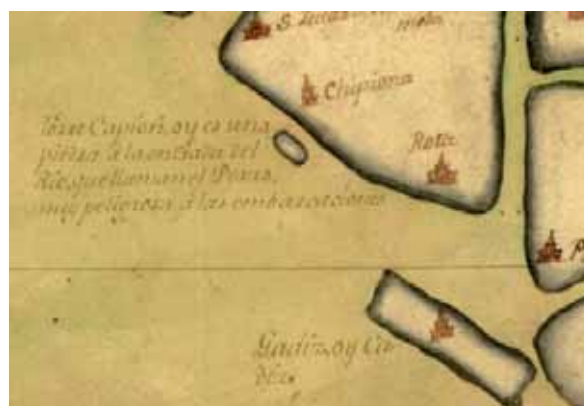 S. Lucar
Chipiona
Rota
Torre Capion, oy es una
piedra à la entrada del
Rio, que llaman el Perro,
muy peligrosa à las embarcaciones
P
Gadiz, oy Ca-
diz.